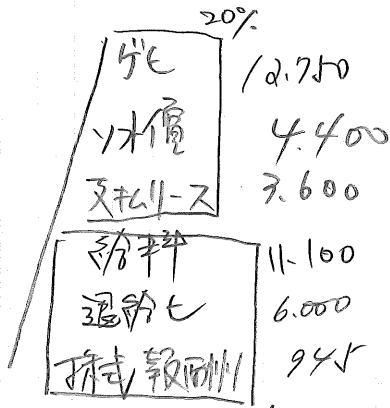 20%
ゲヒ 12.750
ソネ價 4.400
支ムリース 3.600
給料 11.100
退給ヒ 6.000
株式報酬 945